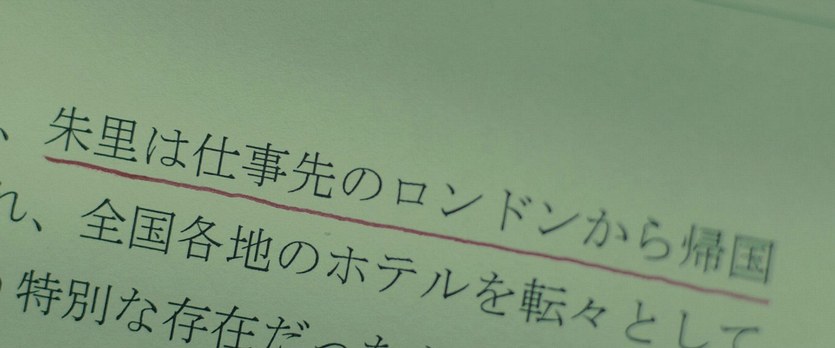 、朱里は仕事先のロンドンから帰国
れ、全国各地のホテルを転々として
特別な存在だった